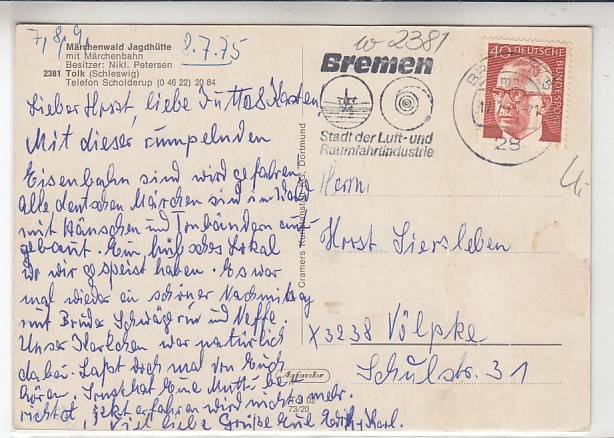 7,8,9,
Märchenwald Jagdhütte
mit Märchenbahn
Besitzer: Nikl. Petersen
2381 Tolk (Schleswig)
Telefon Scholderup (0 46 22) 20 84
2.7.75
Lieber Horst, liebe Jutta & Karsten,
Mit dieser rumpelnden
Eisenbahn sind wir gefahren
alle deutschen Märchen sind im Wald
mit Häuschen und Tonbändern auf-
gebaut. Ein hübsches Lokal
wo wir gespeist haben. Es war
mal wieder ein schöner Nachmittag
mit Bruder Schwägerin und Neffe.
Unser Karlchen war natürlich
dabei. Laßt doch mal von Euch
hören. Eure Mutti be-
richtet, jetzt erfahren wird nichts mehr.
Viel liebe Grüße Eure Edith & Karl.
Cramers Kunstanstalt KG, Dortmund
Agfacolor
73/20
w 2381
Bremen
Stadt der Luft- und
Raumfahrtindustrie
40 DEUTSCHE BUNDESPOST
28
Herrn
Horst Liersleben
X3238 Völpke
Schulstr. 31